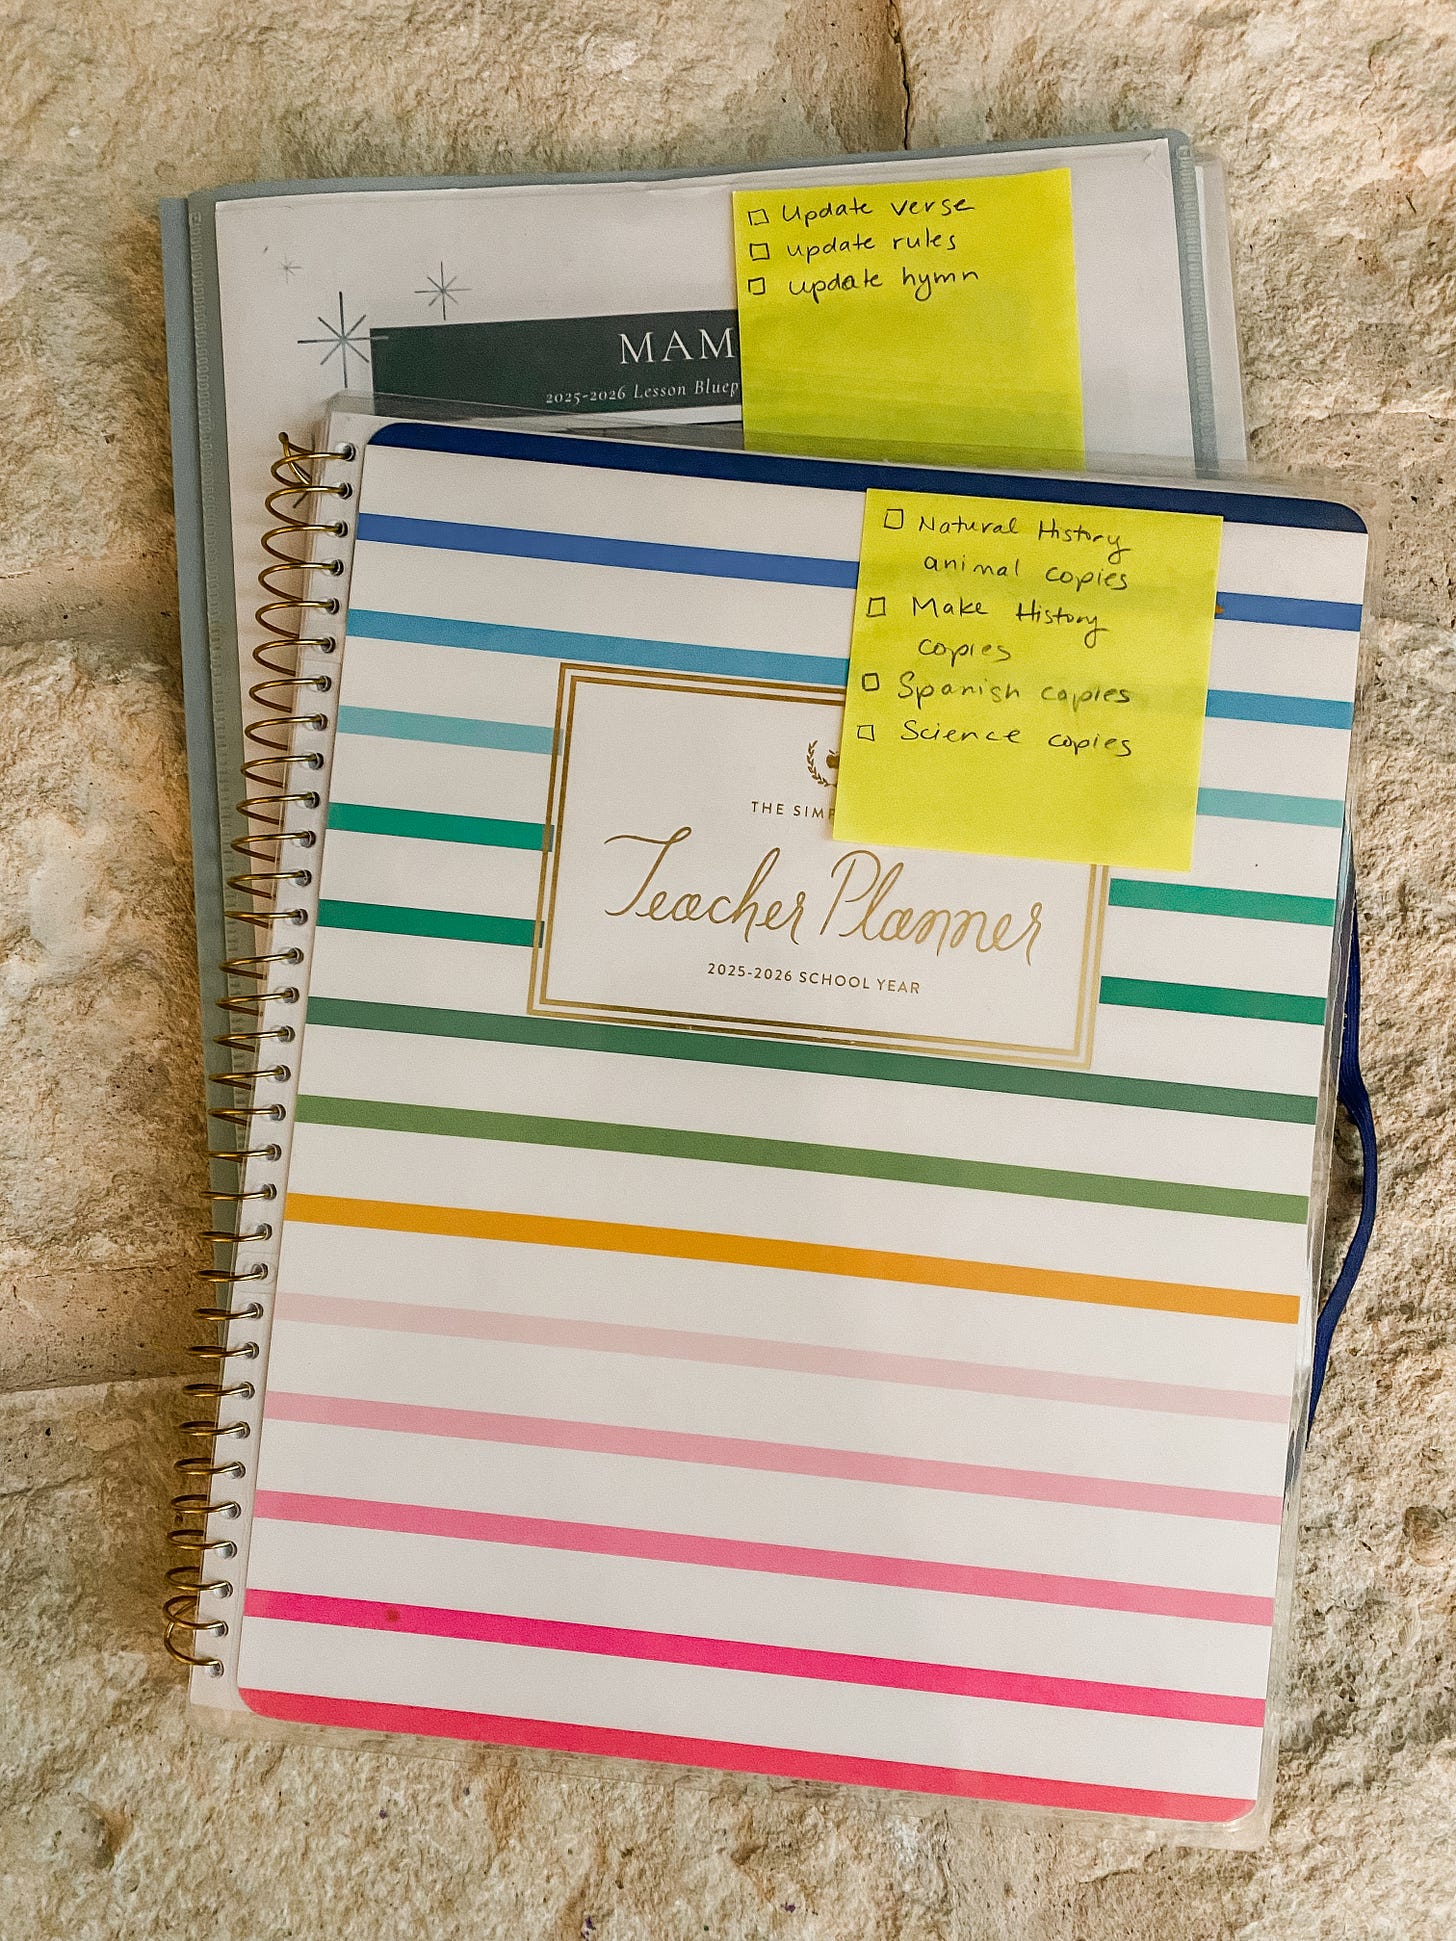 ☐ Update verse
☐ update rules
☐ update hymn
MAM
2025-2026 Lesson Bluep
☐ Natural History
animal copies
☐ Make History
copies
☐ Spanish copies
☐ Science copies
THE SIMP
Teacher Planner
2025-2026 SCHOOL YEAR